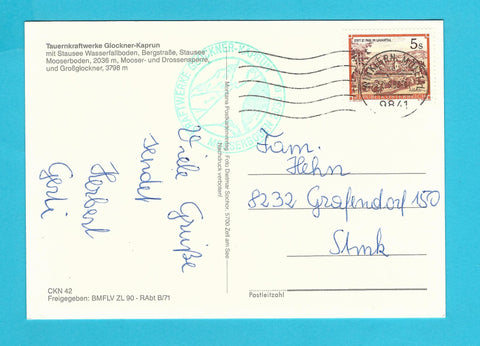 Tauernkraftwerke Glockner-Kaprun
mit Stausee Wasserfallboden, Bergstraße, Stausee
Mooserboden, 2036 m, Mooser- und Drossensperre,
und Großglockner, 3798 m
KRAFTWERKE GLOCKNER-KAPRUN
MOOSERBODEN
5 S
9841
Viele Grüße
sendet
Herbert
Gerti
Fam.
Hehn
8232 Grafendorf 150
Stmk
Postleitzahl
Montana Postkartenverlag Foto Dietmar Sochor, 5700 Zell am See
Nachdruck verboten!
CKN 42
Freigegeben: BMFLV ZL 90 - RAbt B/71